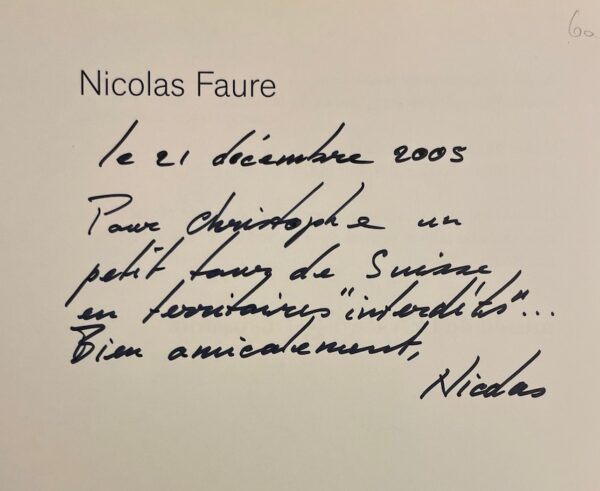 60
Nicolas Faure
le 21 décembre 2005
Pour Christophe un
petit tour de Suisse
en territoires "interdits"...
Bien amicalement,
Nicolas